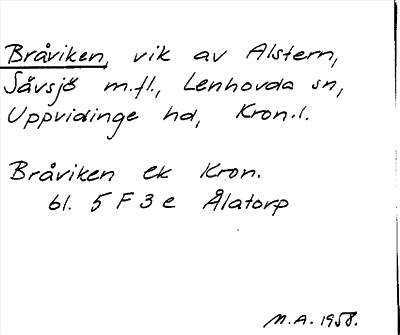 Bråviken, vik av Alstern,
Såvsjö m.fl., Lenhovda sn,
Uppvidinge hd, Kron.l.
Bråviken ek Kron.
bl. 5 F 3 e Ålatorp
M.A. 1958.